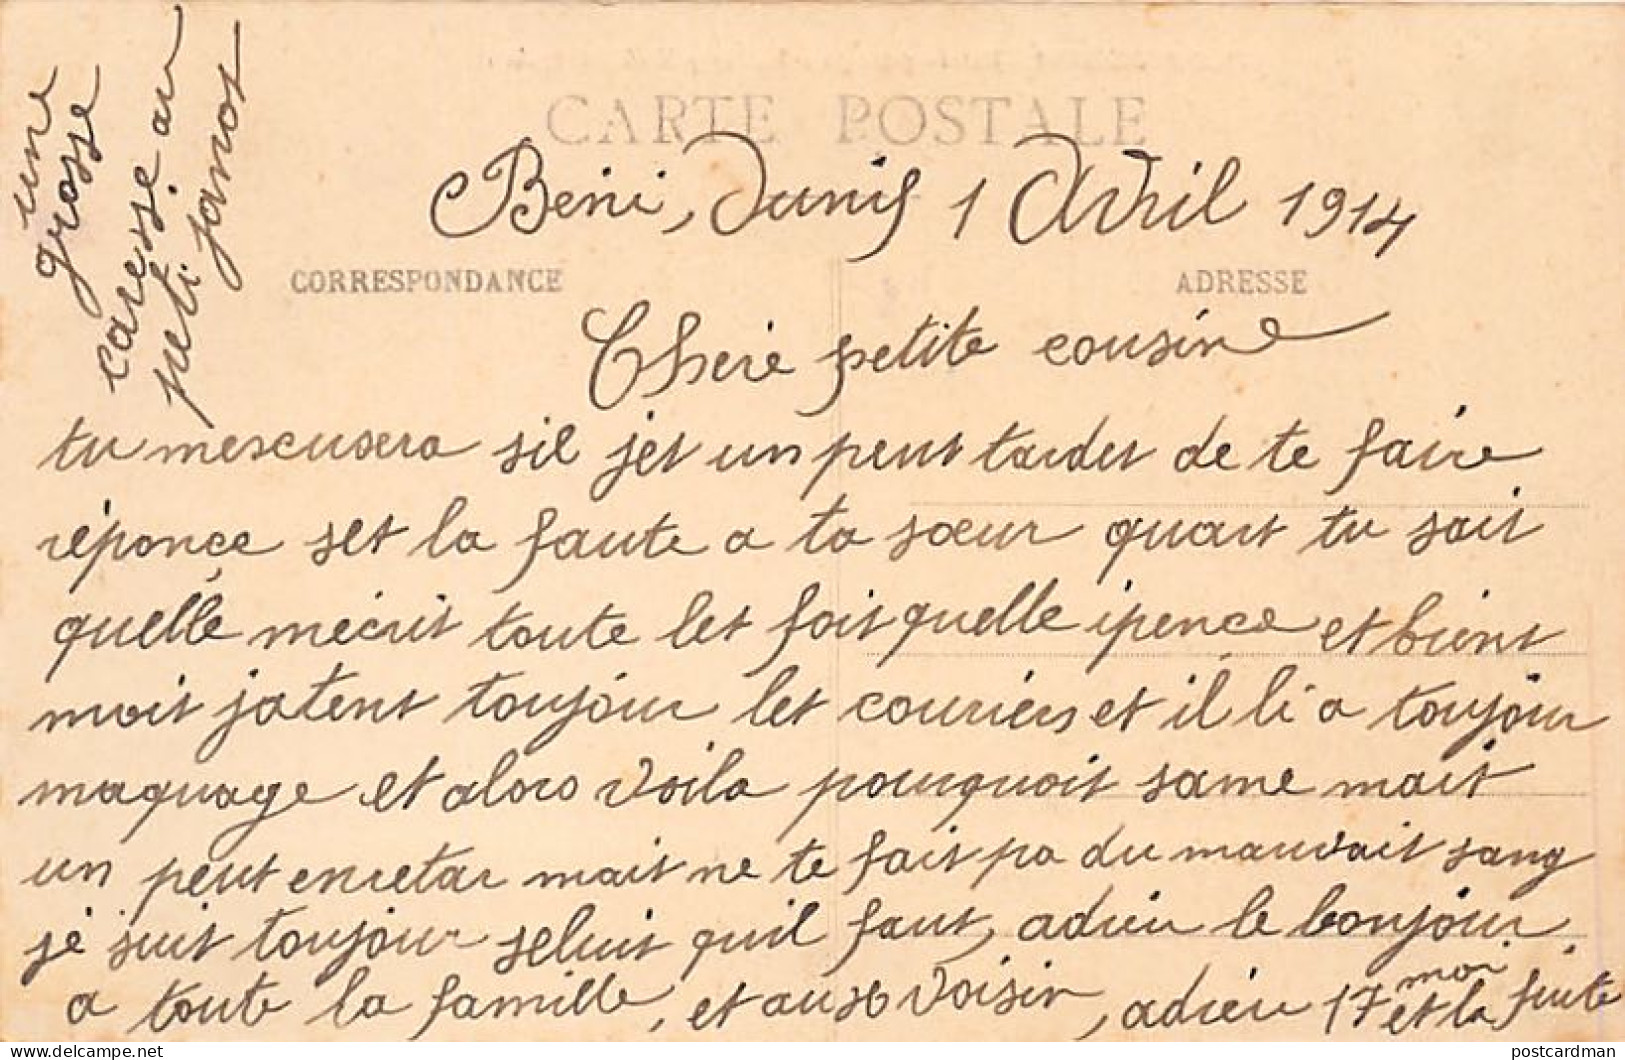 une
grosse
caresse au
peti janot
CARTE POSTALE
Beni, Dunis 1 Avril 1914
CORRESPONDANCE
ADRESSE
Cheré petite cousine
tu mescusera sil jet un peut tarder de te faire
réponçe set la faute a ta sœur quart tu sait
quellé mécrit toute let fois quelle ipençe et bient
moit jatent toujour let couriérs et il li a toujour
maquage et alors voila pourquoit same mait
un peut enretar mait ne te fait pa du mauvait sang
jé suit toujour seluit quil faut, adieu le bonjour
a toute la famille, et ausx voisin, adieu 17 moi et la fuite
postcardman